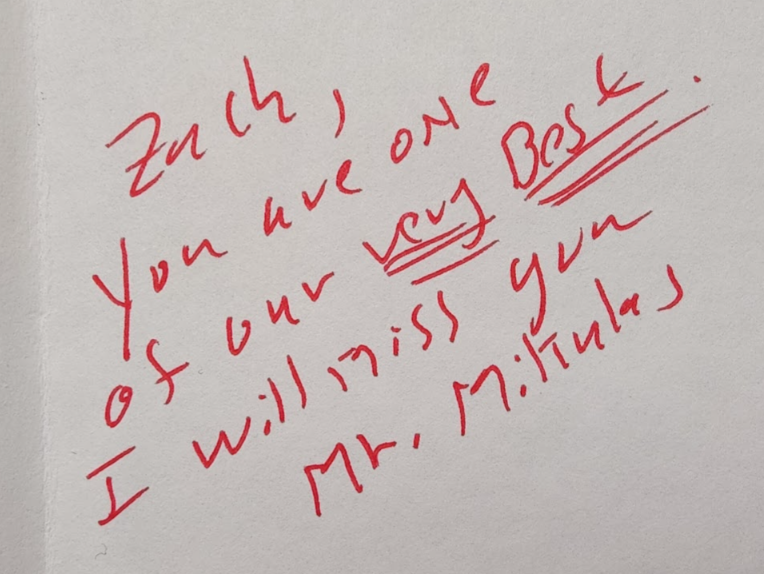 Zach,
You are one
of our very Best.
I will miss you
Mr. Mikulas